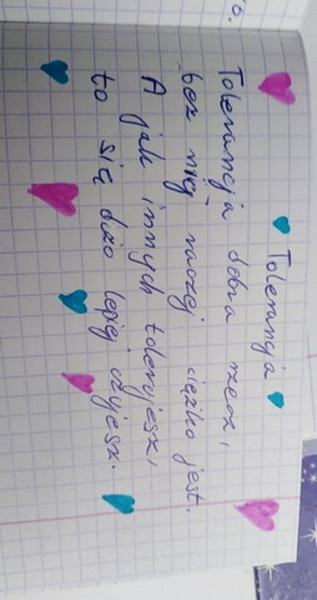 Tolerancja
Tolerancja dobra rzecz,
bez niej raczej ciężko jest.
A jak innych tolerujesz,
to się dużo lepiej czujesz.